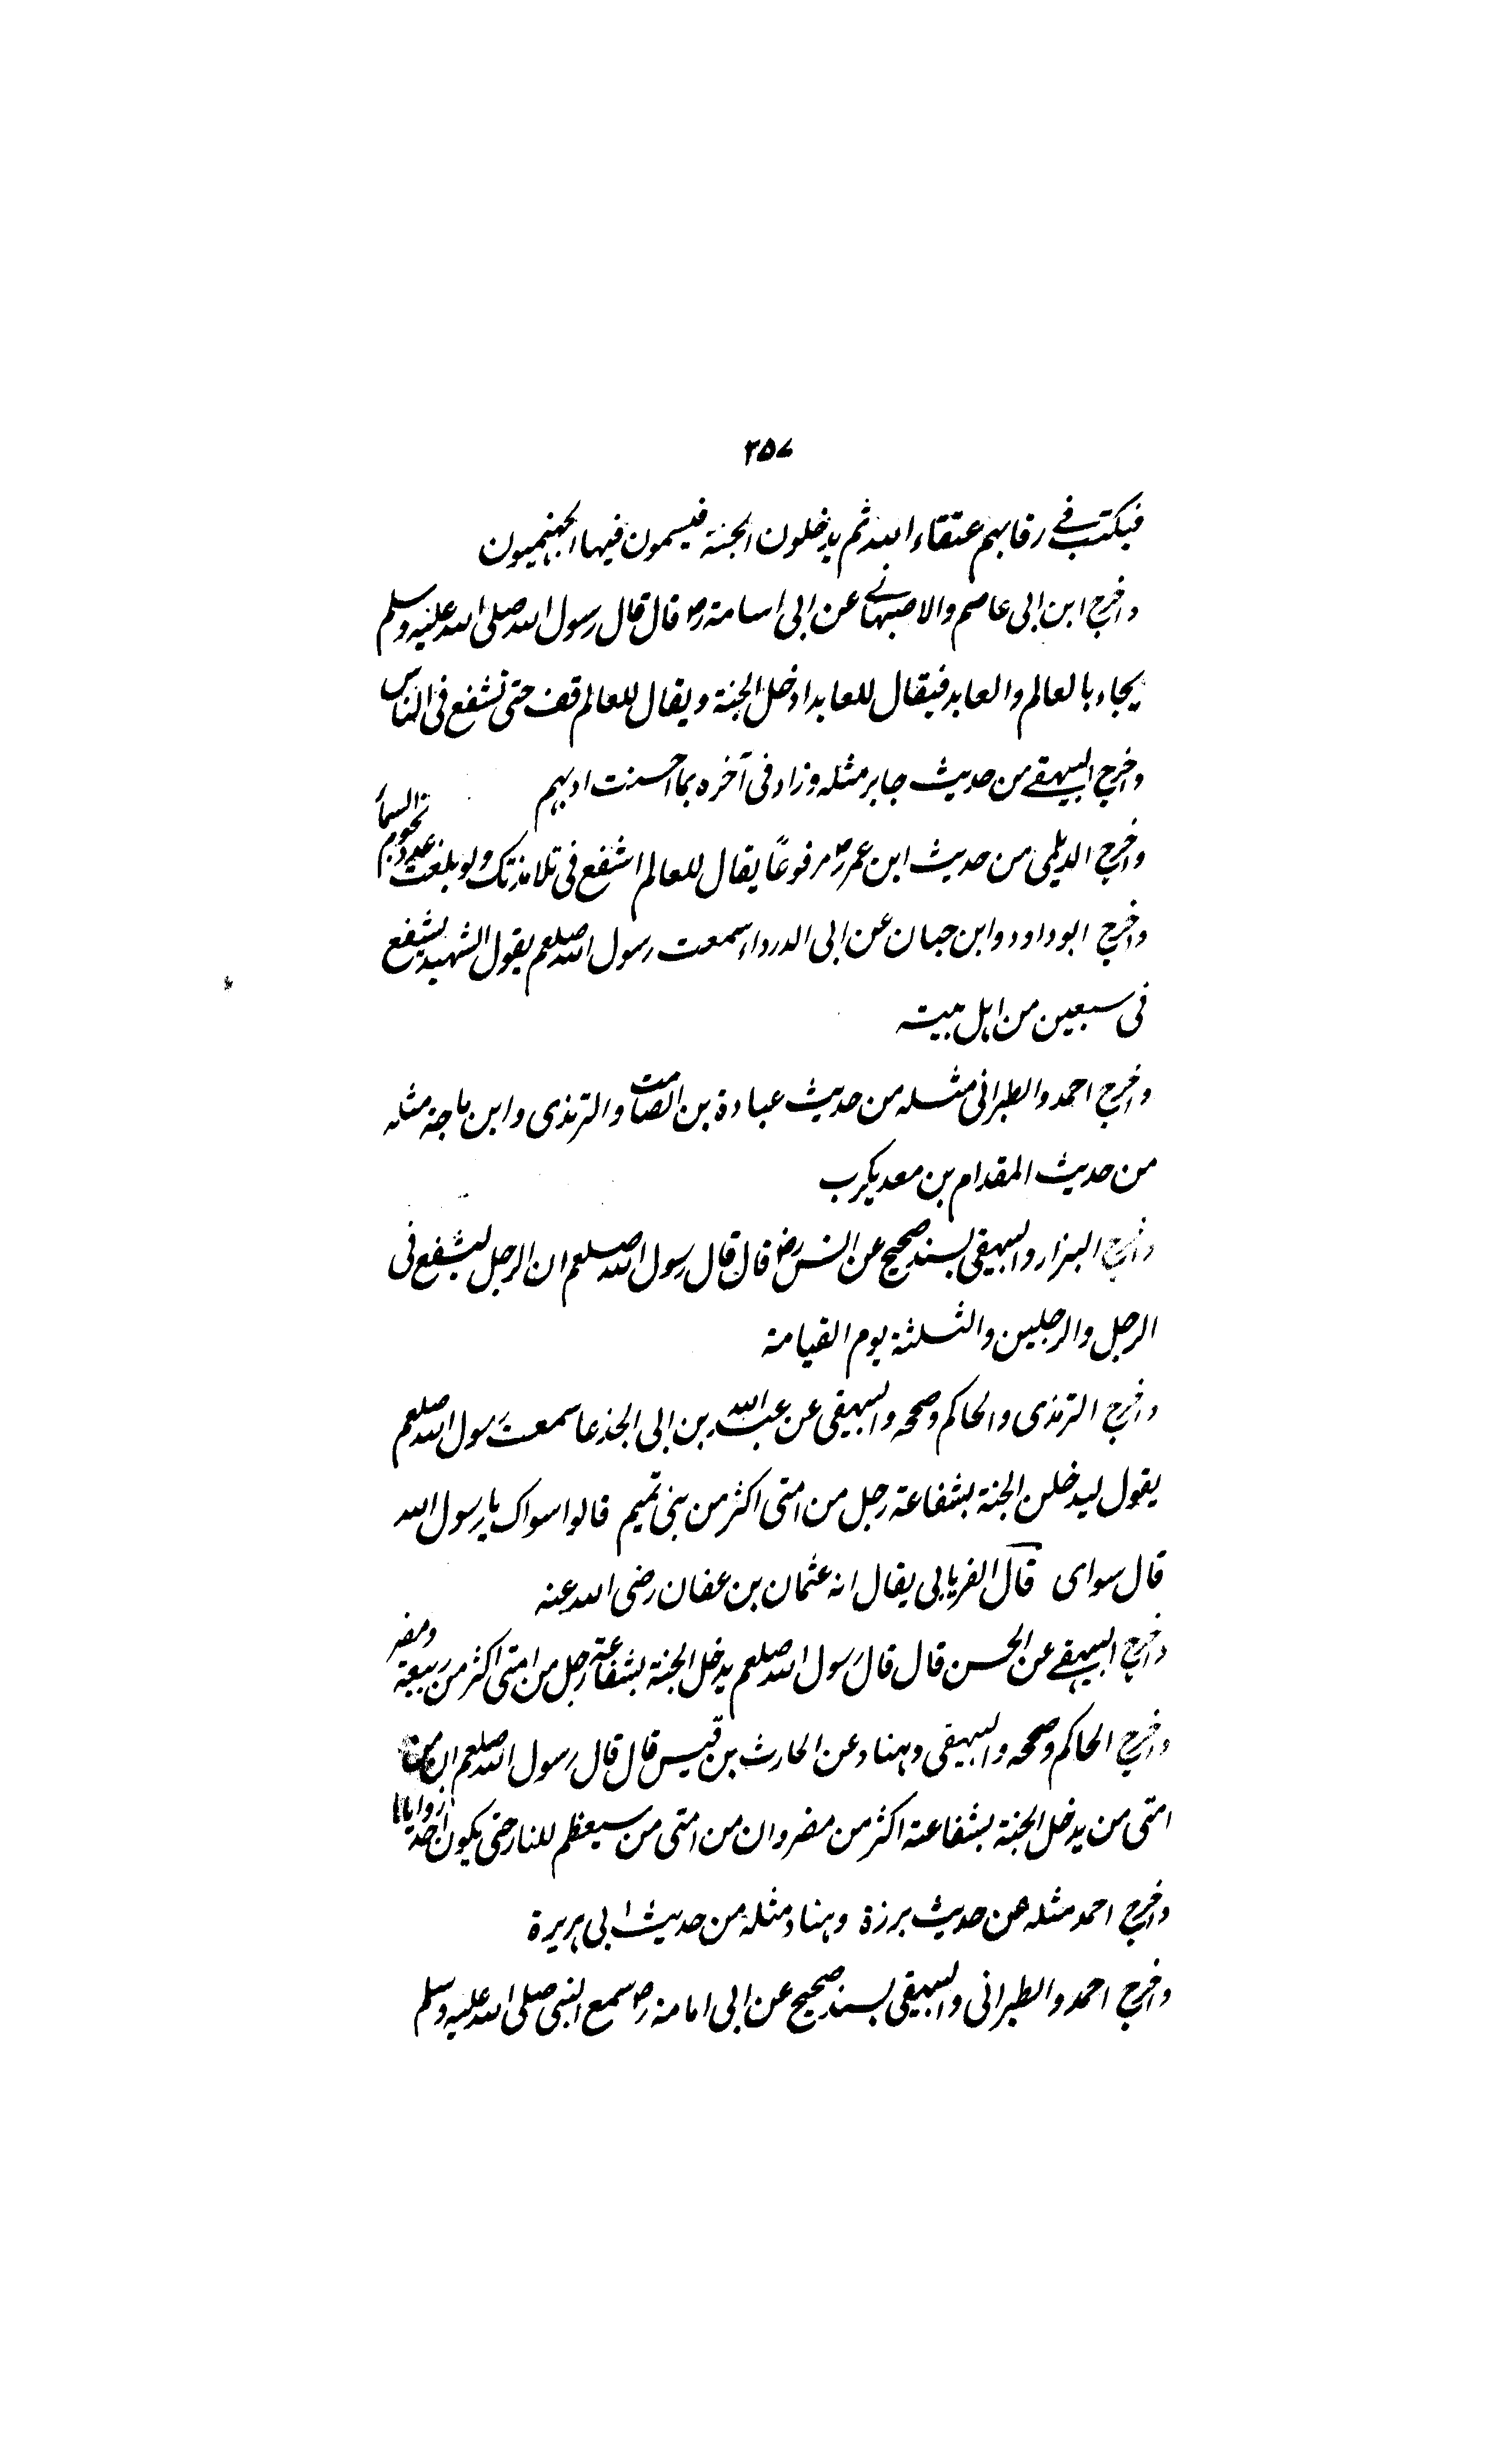 ٣٥٧
فيكتب في رقابهم عتقاء الله ثم يدخلون الجنة فيسمون فيها الجهنميون
واخرج ابن ابى عاصم والاصبهانے عن ابى اسامة رض قال قال رسول الله صلى الله عليه وسلم
يجاء بالعالم والعابد فيقال للعابد ادخل الجنة ويقال للعالم قف حتى تشفع فى الناس
واخرج البيهقے من حديث جابر مثله وزاد فى آخره بما احسنت ادبهم
واخرج الديلمى من حديث ابن عمر رض مرفوعًا يقال للعالم اشفع فى تلامذتك ولو بلغت عددهم نجوم السماء
واخرج ابو داود وابن حبان عن ابى الدرداء سمعت رسول الله صلعم يقول الشهيد يشفع
فى سبعين من اهل بيته
واخرج احمد والطبرانى مثله من حديث عبادة بن الصامت والترمذى وابن ماجة مثله
من حديث المقدام بن معديكرب
واخرج البزار والبيهقى بسند صحيح عن انس رض قال قال رسول الله صلعم ان الرجل ليشفع فى
الرجل والرجلين والثلثة يوم القيامة
واخرج الترمذى والحاكم وصححه والبيهقى عن عبد الله بن ابى الجذعا سمعت رسول الله صلعم
يقول ليدخلن الجنة بشفاعة رجل من امتى اكثر من بنى تميم قالوا سواك يا رسول الله
قال سواى قال الفريابى يقال انه عثمان بن عفان رضى الله عنه
واخرج البيهقے عن الحسن قال قال رسول الله صلعم يدخل الجنة بشفاعة رجل من امتى اكثر من ربيعة ومضر
واخرج الحاكم وصححه والبيهقى وهناد عن الحارث بن قيس قال قال رسول الله صلعم ان من
امتى من يدخل الجنة بشفاعته اكثر من مضر وان من امتى من سيعظم للنار حتى يكون احد زواياها
واخرج احمد مثله من حديث برزة وهناد مثله من حديث ابى هريرة
واخرج احمد والطبرانى والبيهقى بسند صحيح عن ابى امامة رض سمع النبى صلى الله عليه وسلم